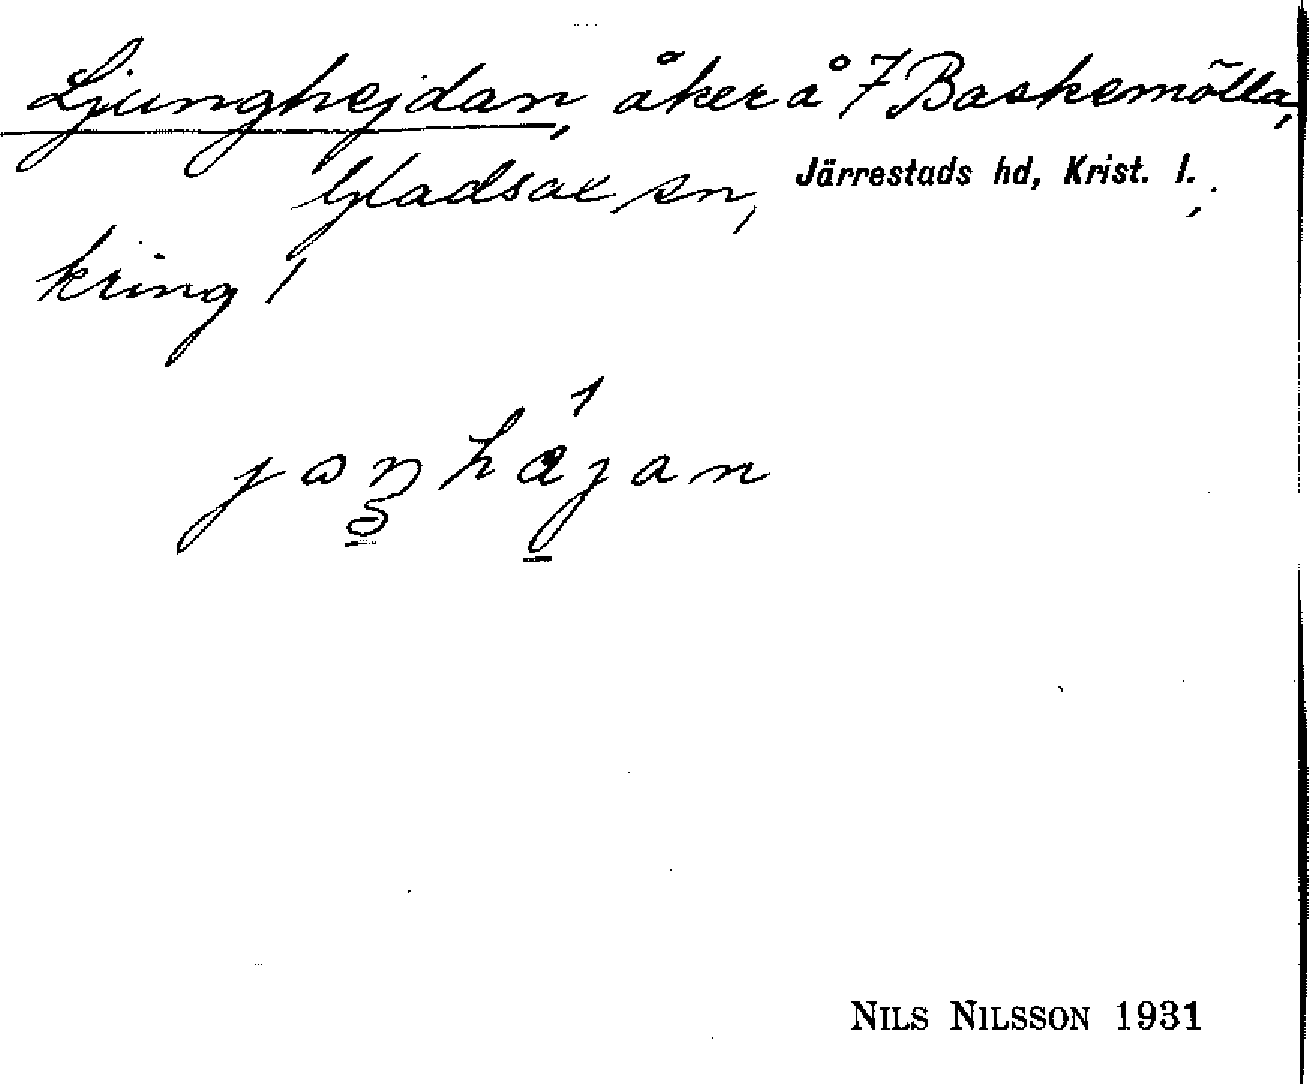 Ljunghejdan, åker å 7 Baskemölla,
Gladsax sn, Järrestads hd, Krist. l.,
kring 1
NILS NILSSON 1931